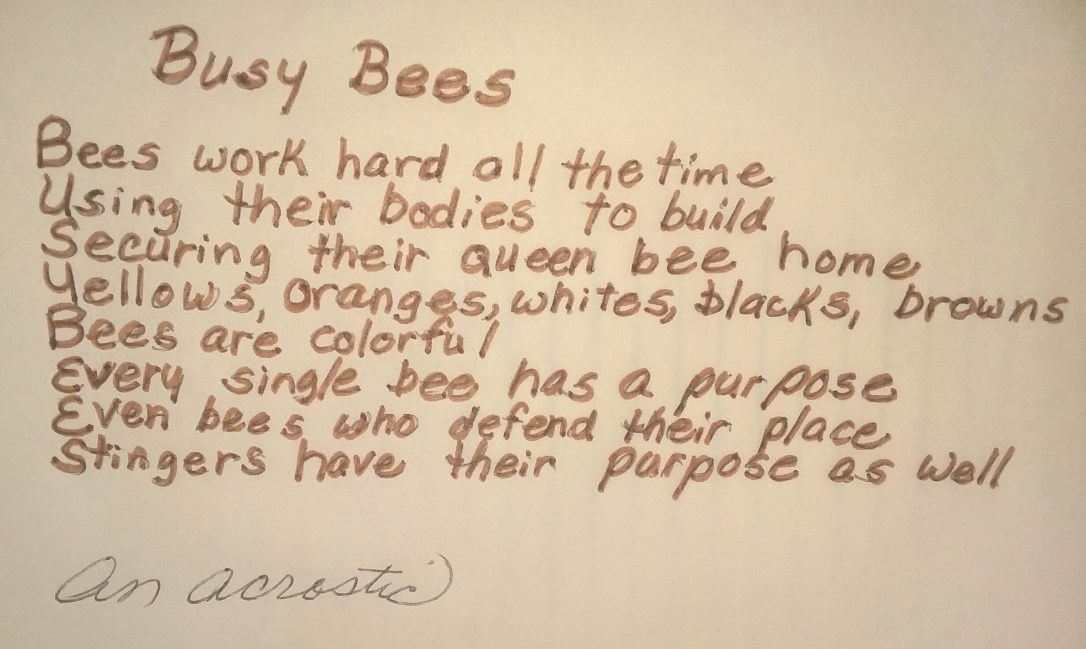 Busy Bees
Bees work hard all the time
Using their bodies to build
Securing their queen bee home
Yellows, oranges, whites, blacks, browns
Bees are colorful
Every single bee has a purpose
Even bees who defend their place
Stingers have their purpose as well
An acrostic